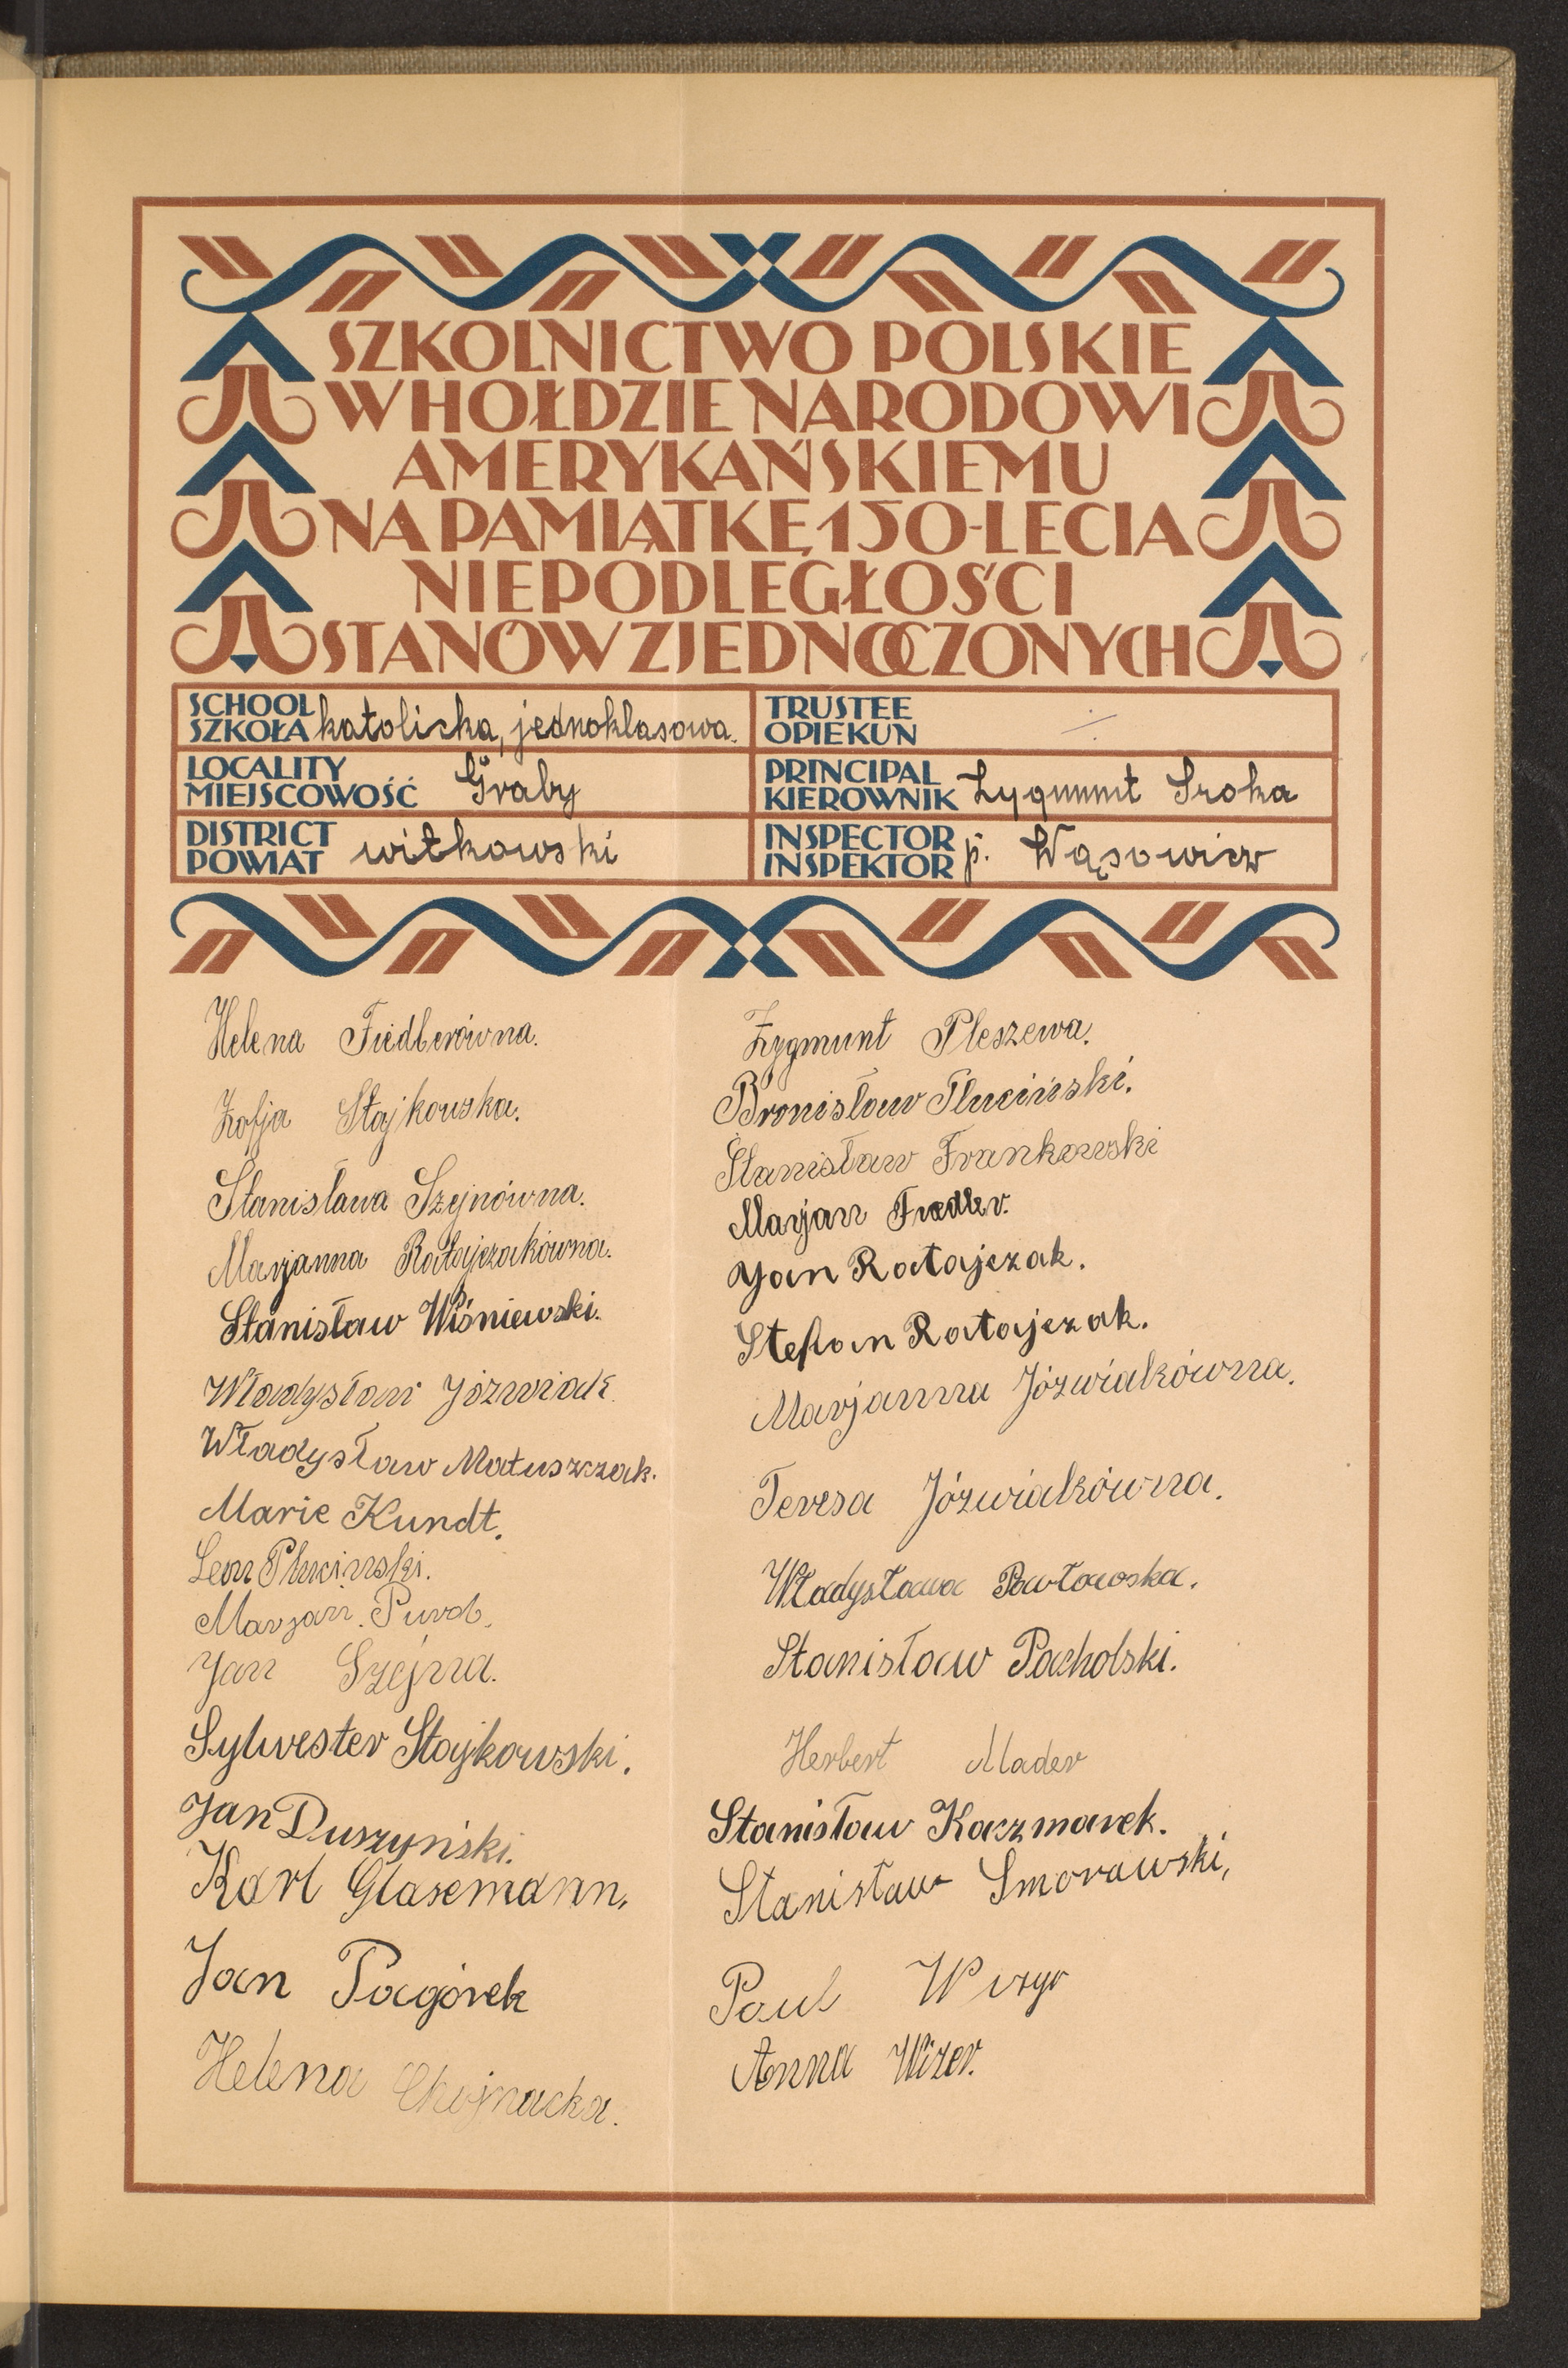 SZKOLNICTWO POLSKIE
W HOŁDZIE NARODOWI
AMERYKAŃSKIEMU
NA PAMIĄTKĘ 150-LECIA
NIEPODLEGŁOŚCI
STANÓW ZJEDNOCZONYCH
SCHOOL
SZKOŁA katolicka, jednoklasowa.
TRUSTEE
OPIEKUN
LOCALITY
MIEJSCOWOŚĆ Graby
PRINCIPAL
KIEROWNIK Zygmunt Sroka
DISTRICT
POWIAT witkowski
INSPECTOR
INSPEKTOR p. Wąsowicz
Helena Fiedlerówna.
Zofja Stajkowska.
Stanisława Szejnówna.
Marjanna Ratajczakówna.
Stanisław Wiśniewski.
Władysław Józwiak
Władysław Matuszczak.
Marie Kundt.
Leon Płuciński.
Marjan
Jan Szejna.
Sylwester Stajkowski.
Jan Duszyński.
Karl Glasemann.
Jan Pagórek
Helena Chojnacka.
Zygmunt Pleszewa.
Bronisław Płuciński.
Stanisław Frankowski
Marjan Fiedler.
Jan Ratajczak.
Stefan Ratajczak.
Marjanna Józwiakówna.
Teresa Józwiakówna.
Władysława Pawłowska.
Stanisław Pacholski.
Herbert Mader
Stanisław Kaczmarek.
Stanisław Smorawski,
Paul
Anna Wizer.